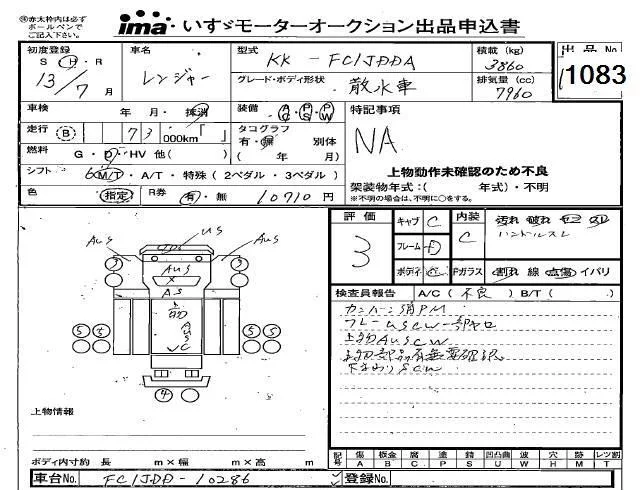 ㊟赤太枠内は必ず
ボールペンで
ご記入下さい。
ima いすゞモーターオークション出品申込書
初度登録 車名 型式 KK - FC1JDDA 積載(kg) 3860 出品No
S・H・R 13/7月 レンジャー グレード・ボディ形状 散水車 排気量(cc) 7960 1083
車検 年 月・抹消 装備 AC・PS・PW 特記事項
走行 B 73 000km「 」 タコグラフ 有・無 別体 NA
燃料 G・D・HV 他( ) ( 年 月)
シフト 6 M/T・A/T・特殊(2ペダル・3ペダル) 上物動作未確認のため不良
色 指定 R券 有・無 10710円 架装物年式:( 年式)・不明
※不明の場合は、年明に○をする。
評価 3 キャブ C 内装 C 汚れ 破れ
フレーム D ハンドルスレ
ボディ Fガラス 割れ 線 点傷 イバリ
AUS US AUS
3 3
AUS
X
AS
5 5 5 5
4
検査員報告 A/C(不良) B/T( )
カンバン消PM
フレームUSCW一部キロ
上物AUSCW
上物部品有無要確認
下まわりSCW
上物情報
ボディ内寸約 長 m×幅 m×高 m
記号 傷 板金 腐 塗 錆 凹凸曲 波 穴 跡 レツ割
A B C P S U W H M T
車台No. FC1JDD-10286 登録No.